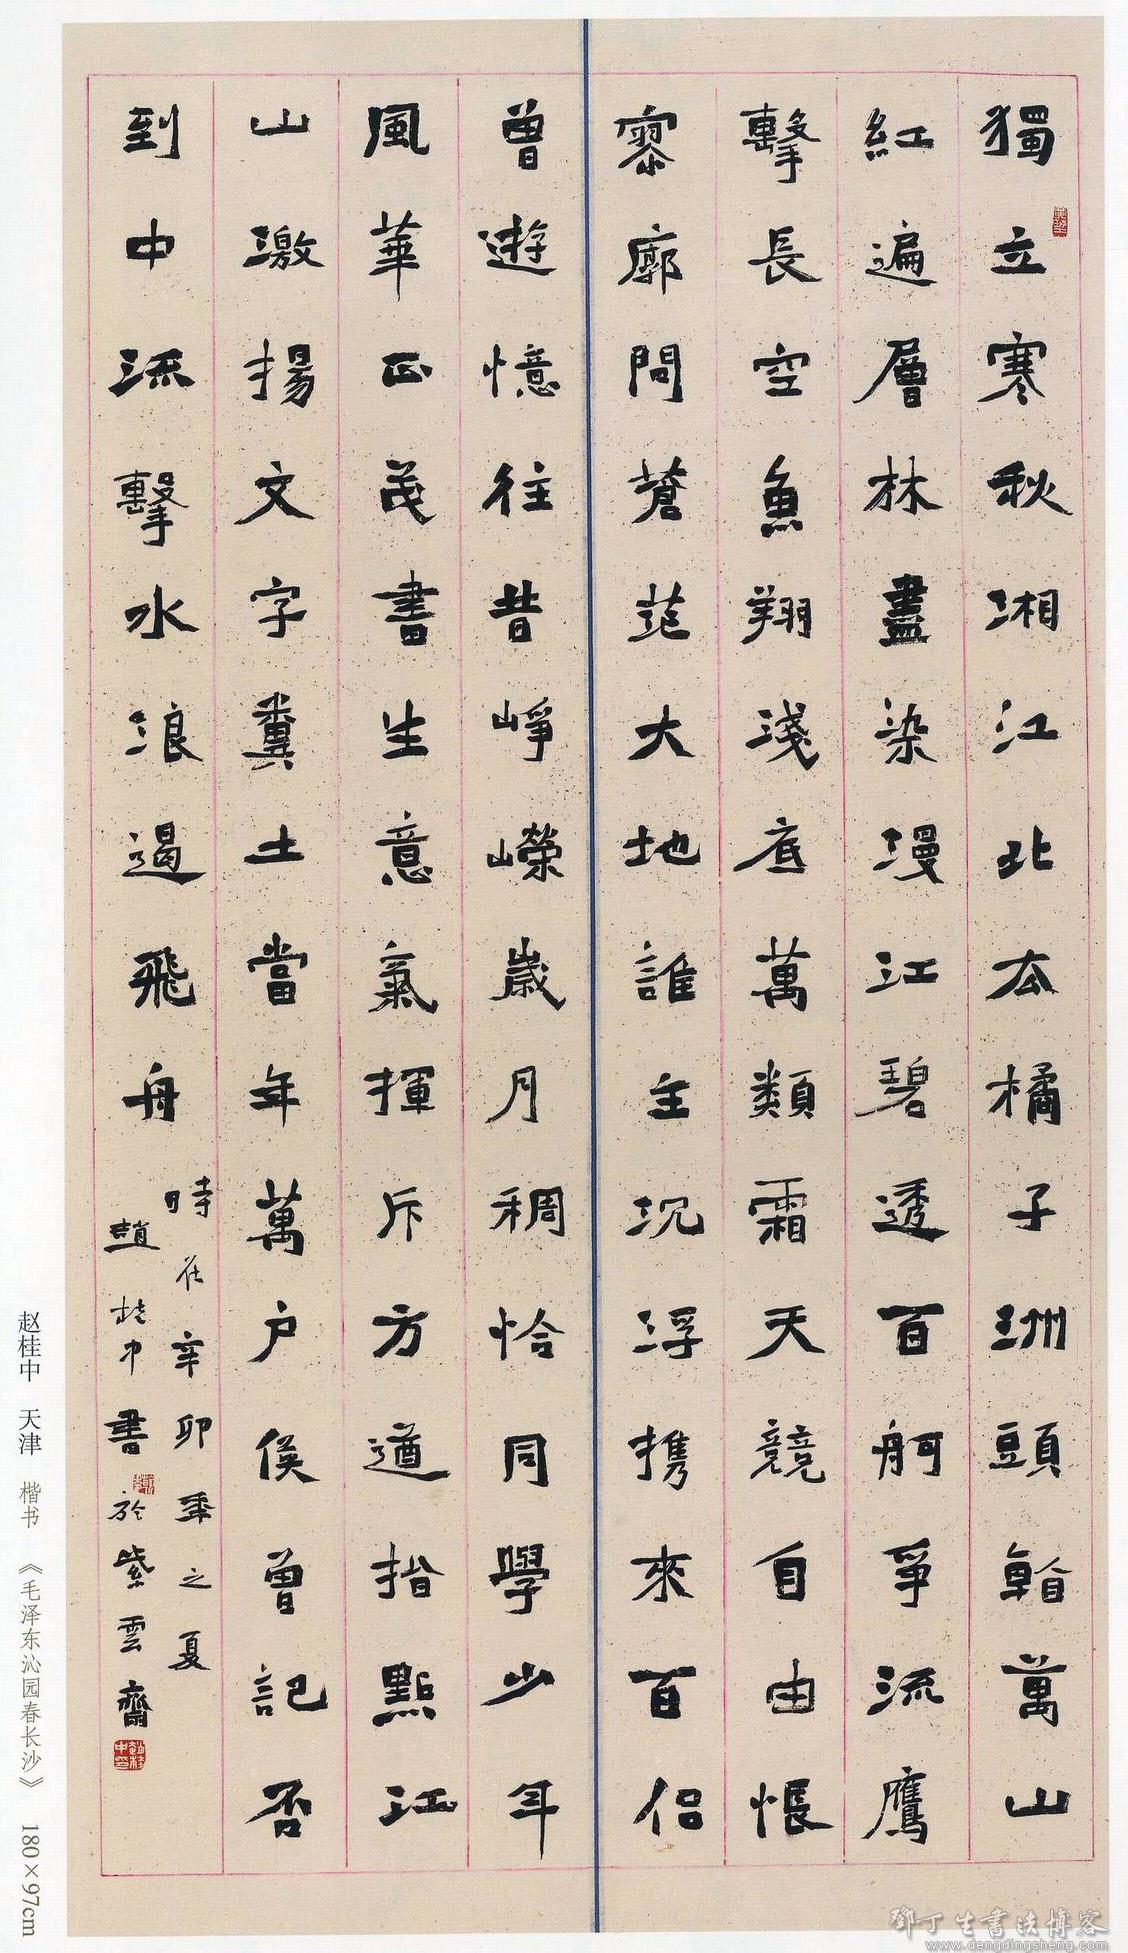 獨立寒秋湘江北去橘子洲頭看萬山
紅遍層林盡染漫江碧透百舸爭流鷹
擊長空魚翔淺底萬類霜天競自由悵
寥廓問蒼茫大地誰主沉浮携來百侶
曾遊憶往昔崢嶸歲月稠恰同學少年
風華正茂書生意氣揮斥方遒指點江
山激揚文字糞土當年萬户侯曾記否
到中流擊水浪遏飛舟
時在辛卯年之夏
趙桂中書於紫雲齋
赵桂中 天津 楷书 《毛泽东沁园春长沙》 180×97cm
鄧丁生書法博客
www.dengdingsheng.com